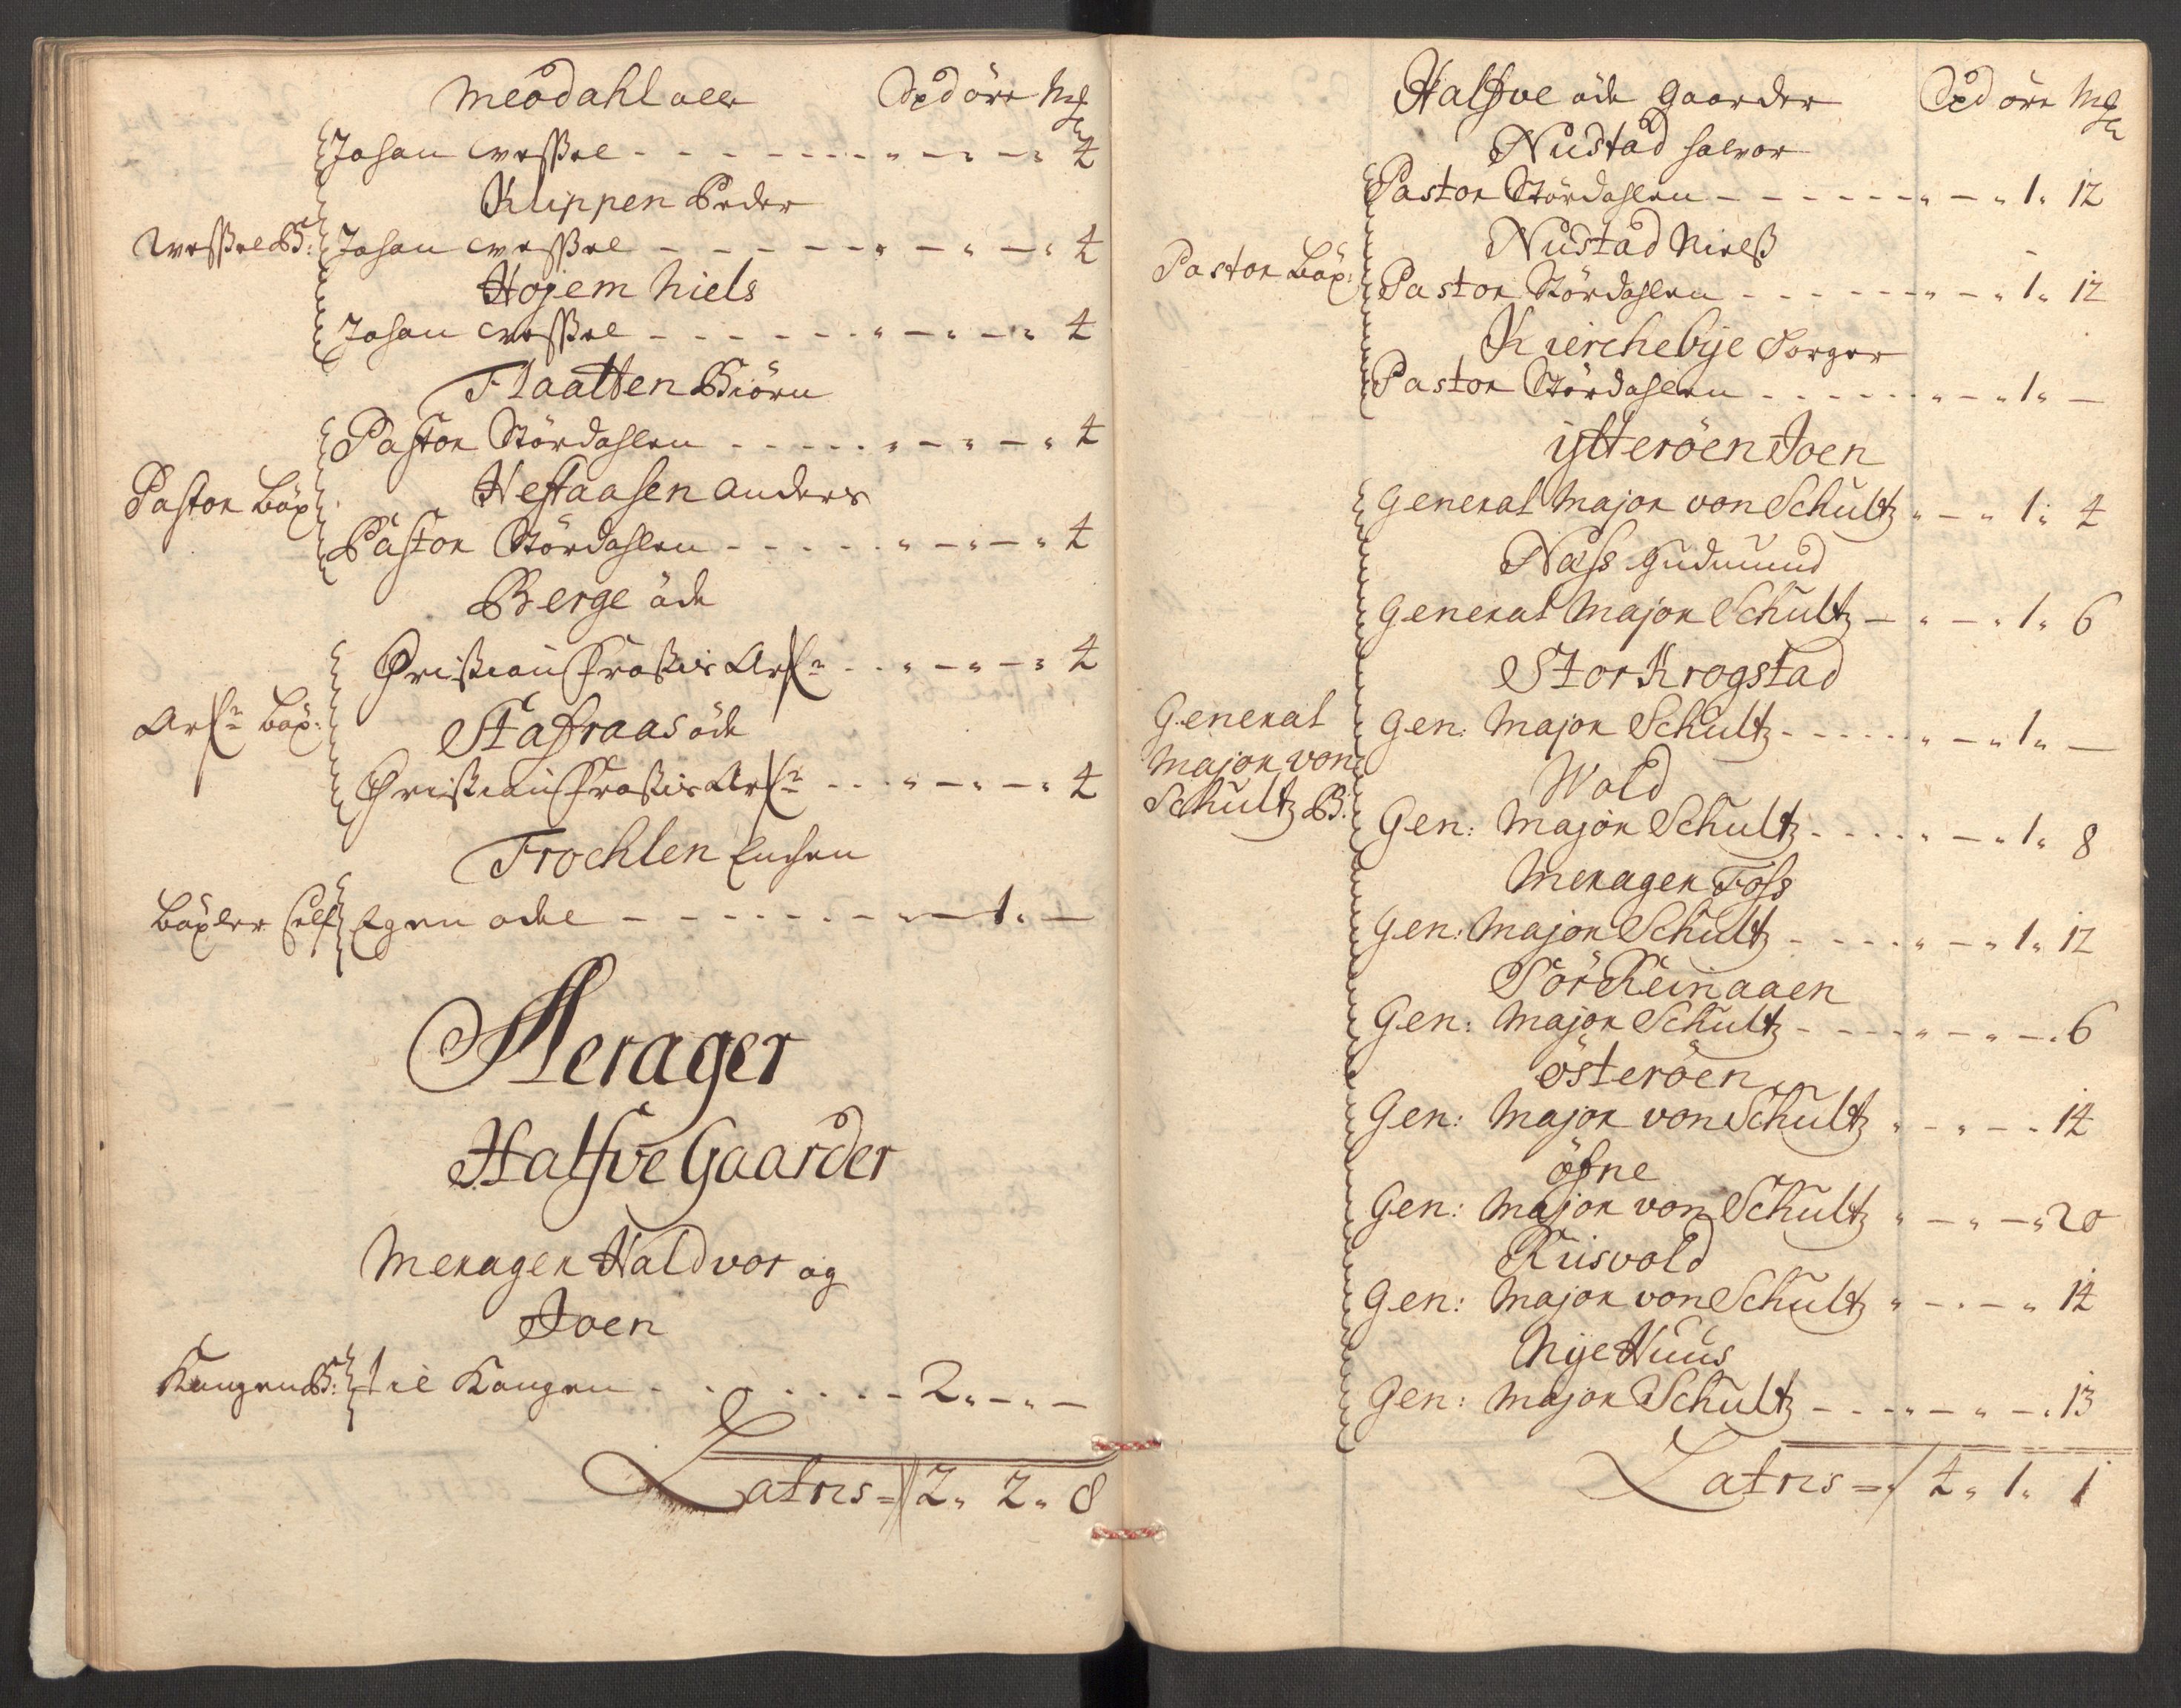 Meodahl ole Spd öre Mk
Johan Wessel - - - - - - - 4
Klippen Peder
Wessel B: Johan Wessel - - - - - - - 4
Hojem Niels
Johan Wessel - - - - - - - 4
Flaatten Biörn
Pastor Stördahlen - - - - - - - 4
Pastor Böx: Hestaasen Anders
Pastor Stördahlen - - - - - - - 4
Berge öde
Christian Frostis Arf: - - - - - 4
Arf: Böx: Stafraas öde
Christian Frostis Arf: - - - - - 4
Trochlen Enchen
Böxler Self Egen odel - - - - - - - 1. -
Merager
Halfve Gaarder
Merager Haldvor og
Joen
Kongen B: til Kongen - - - - - - 2. - . -
Latris = 2. 2. 8
Halfve öde Gaarder Spd öre Mk
Nustad Halvor
Pastor Stördahlen - - - - - - - 1. 12
Nustad Nielß
Pastor Böx: Pastor Stördahlen - - - - - - - 1. 12
Kierchebije Torger
Pastor Stördahlen - - - - - - - 1. -
ytteröen Joen
General Major von Schultz - - 1. 4
Næss Gudmund
General Major Schultz - - - 1. 6
Stor Krogstad
General Major von Schultz B: Gen: Major Schultz - - - - - - 1. -
Wold
Gen: Major Schultz - - - - - - 1. 8
Merager Foss
Gen: Major Schultz - - - - - - 1. 12
Sör Keinaaen
Gen: Major Schultz - - - - - - - 6
österöen
Gen: Major von Schultz - - - 14
öfne
Gen: Major von Schultz - - - 20
Riisvold
Gen: Major von Schultz - - - 14
Nije Huus
Gen: Major Schultz - - - - - - 13
Latris = 4. 1. 1